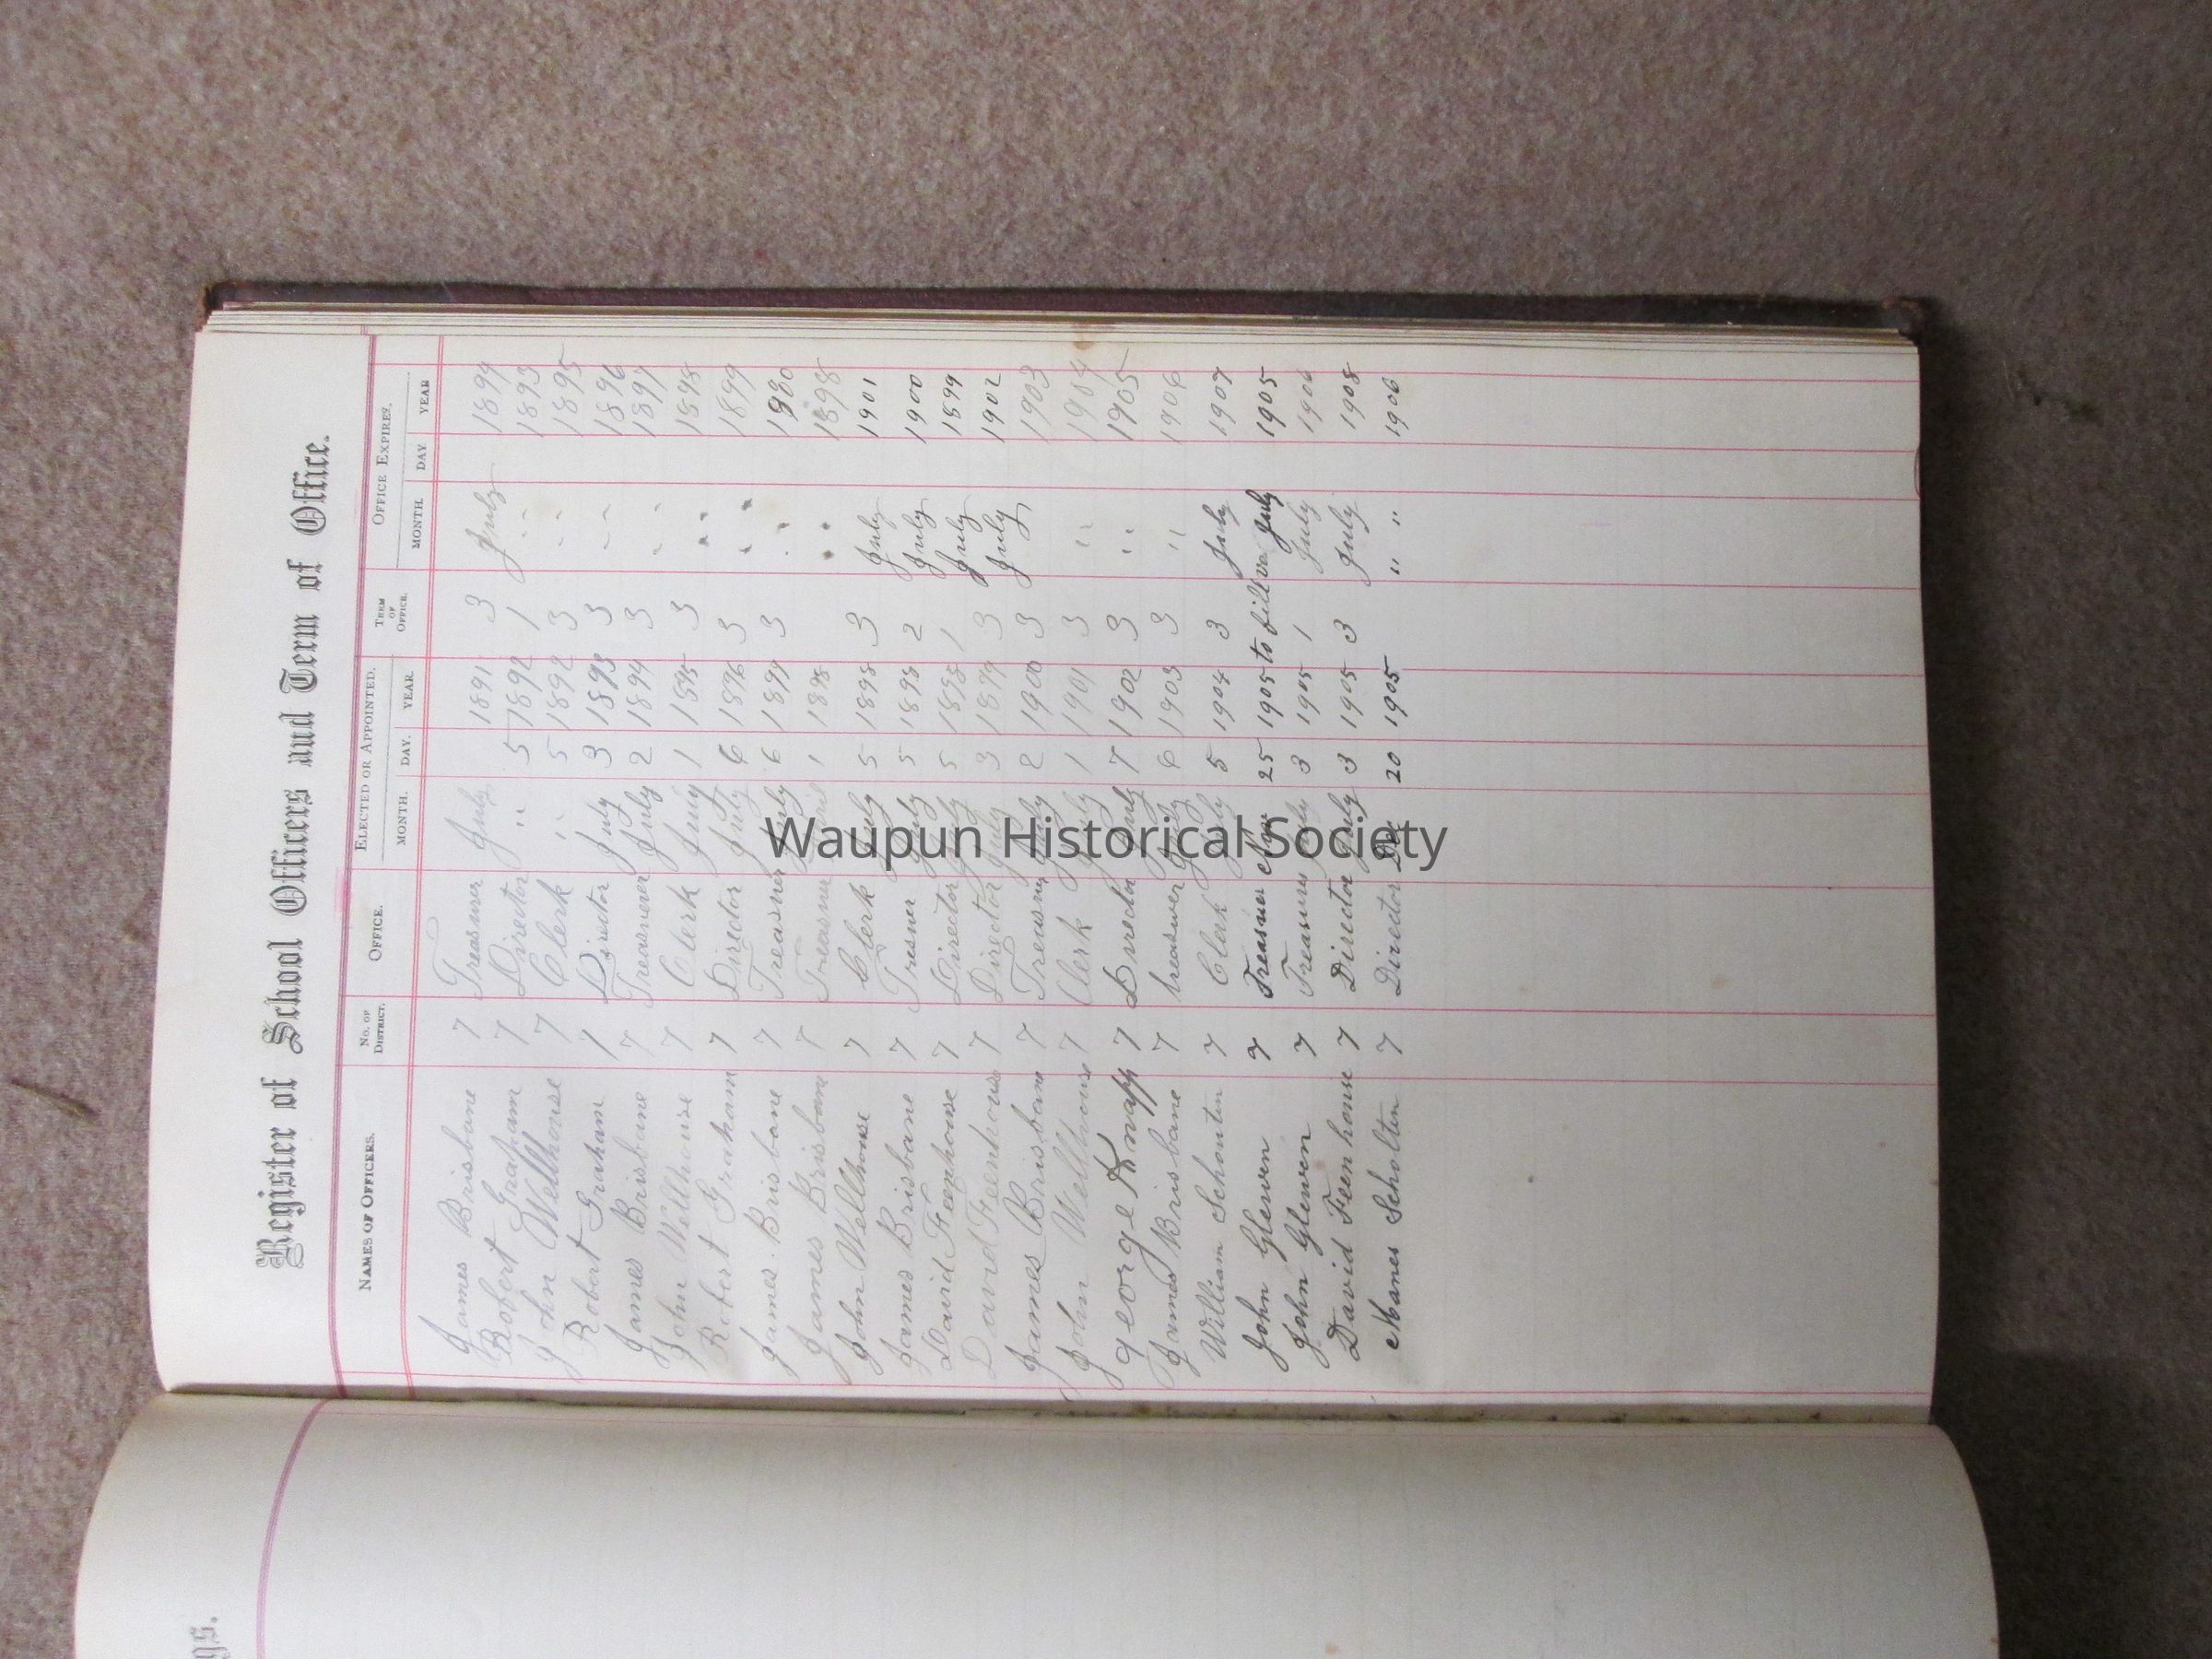 Register of School Officers and Term of Office.
NAMES OF OFFICERS. No. OF DISTRICT. OFFICE. ELECTED OR APPOINTED. TERM OF OFFICE. OFFICE EXPIRES.
MONTH. DAY. YEAR. MONTH. DAY YEAR
James Brisbane 7 Treasurer July 1891 3 July 1894
Robert Graham 7 Director " 5 1892 1 " 1893
John Wellhouse 7 Clerk " 5 1892 3 " 1895
Robert Graham 7 Director July 3 1893 3 " 1896
James Brisbane 7 Treasurer July 2 1894 3 " 1897
John Wellhouse 7 Clerk July 1 1895 3 " 1898
Robert Graham 7 Director July 6 1896 3 " 1899
James Brisbane 7 Treasurer July 6 1897 3 "
James Brisbane 7 Treasurer 1 1898 " 1898
John Wellhouse 7 Clerk July 5 1898 3 July 1901
James Brisbane 7 Tresner July 5 1898 2 July 1900
David Feenhouse 7 Director July 5 1898 1 July 1899
David Feenhouse 7 Director July 3 1899 3 July 1902
James Brisbane 7 Treasurer July 2 1900 3 1903
John Wellhouse 7 Clerk July 1 1901 3 " 1904
George Knapp 7 Director July 7 1902 3 " 1905
James Brisbane 7 treasurer July 6 1903 3 " 1906
William Schouten 7 Clerk July 5 1904 3 July 1907
John Glewen 7 Treasurer 25 1905 to fill va July 1905
John Glewen 7 Treasurer July 3 1905 1 July 1906
David Feenhouse 7 Director July 3 1905 3 July 1908
Manes Scholten 7 Director Dec 20 1905 " " 1906
gs.
Waupun Historical Society